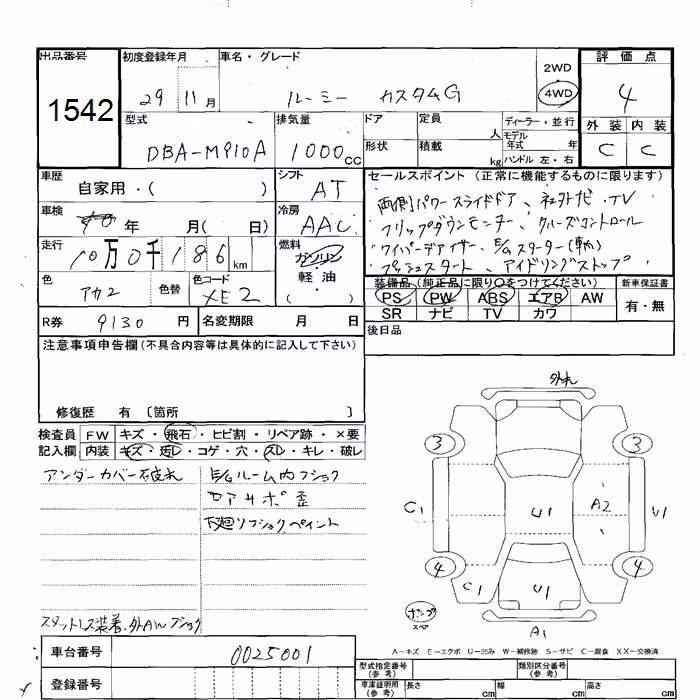 出品番号
1542
初度登録年月
29 11月
車名・グレード
ルーミー カスタムG
2WD
4WD
評価点
4
外装 内装
C C
型式
DBA-M910A
排気量
1000cc
ドア
定員
人
形状
積載
kg
ディーラー・並行
モデル年式 年
ハンドル 左・右
車歴
自家用・( )
シフト
AT
車検
年 月( 日)
冷房
AAC
走行
10万0千186km
燃料
ガソリン
軽・油
( )
色
アカ2
色替
色コード
XE2
R券
9130円
名変期限 月 日
セールスポイント(正常に機能するものに限ります)
両側パワースライドドア、ネットナビ・TV
フリップダウンモニター、クルーズコントロール
ワイパーデアイサー、E/Gスターター
プッシュスタート、アイドリングストップ
装備品(純正品に限り○をつけてください)
PS PW ABS エアB AW
SR ナビ TV カワ
新車保証書
有・無
後日品
注意事項申告欄(不具合内容等は具体的に記入して下さい)
修復歴 有〔箇所 〕
検査員記入欄
FW キズ・飛石・ヒビ割・リペア跡・×要
内装 キズ・汚レ・コゲ・穴・スレ・キレ・破レ
アンダーカバー破れ
E/Gルーム内フショク
ロアサポ歪
下廻りフショク、ペイント
スタットレス装着・外AWフショク
外れ
3 3
C1 U1 A2 U1
4 4
C1 U1
スペア
A1
A-キズ E-エクボ U-凹み W-補修跡 S-サビ C-腐食 XX-交換済
車台番号
0025001
登録番号
型式指定番号(参考)
類別区分番号(参考)
車庫証明用(参考)
長さ cm 幅 cm 高さ cm